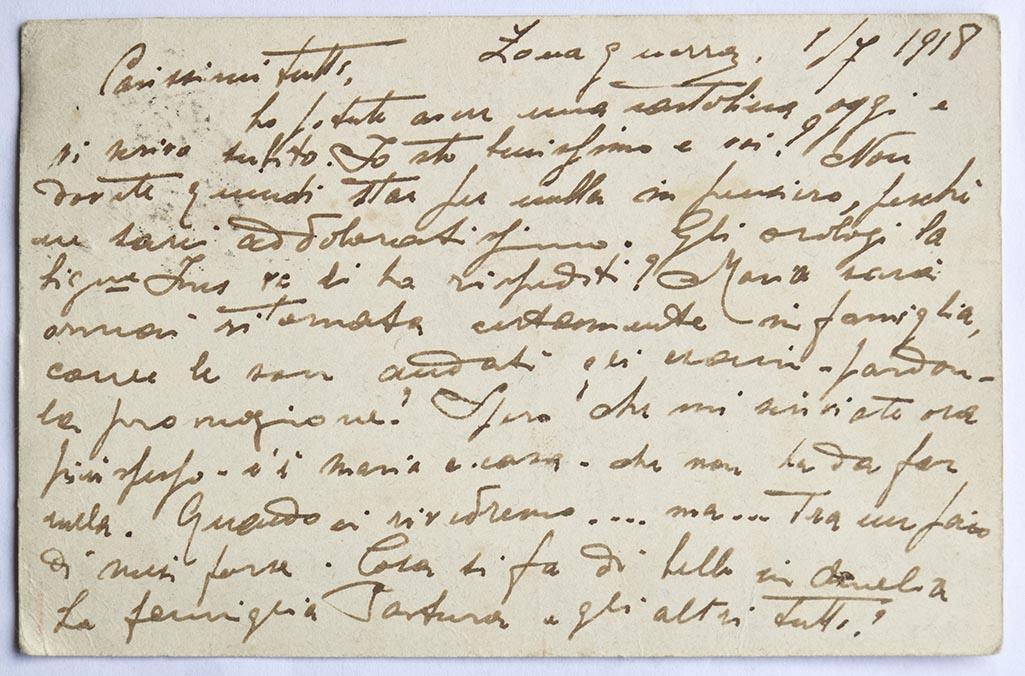 Zona guerra, 1/7 1918
Carissimi tutti,
ho potuto avere una cartolina oggi e
vi scrivo subito. Io sto benissimo e voi? Non
dovete quindi star per nulla in pensiero, perchè
ne sarei addoloratissimo. Gli orologi la
Sigra ve li ha rispediti? Maria sarà
ormai ritornata certamente in famiglia,
come le son andati gli esami - pardon -
la promozione? Spero che mi scriviate ora
più spesso - c'è Maria a casa - che non ha da far
nulla. Quando ci rivedremo .... ma ... Tra un paio
di mesi forse. Cosa si fa di bello in Amelia
La famiglia e gli altri tutti?